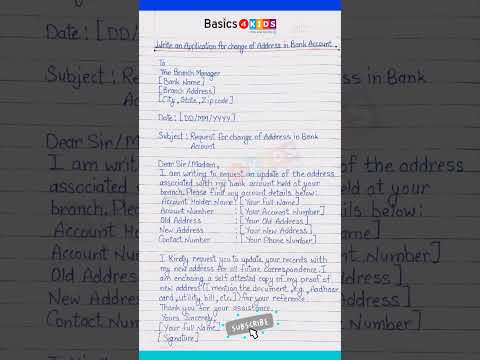 Basics 4 KIDS
Write an Application for change of Address in Bank Account.
To
The Branch Manager
[Bank Name]
[Branch Address]
[City, State, Zipcode]
Date: [DD/MM/YYYY]
Subject: Request for change of Address in Bank
Account
Dear Sir/Madam,
I am writing to request an update of the address
associated with my bank account held at your
branch. Please find my account details below:
Account Holder Name: [Your Full Name]
Account Number : [Your Account Number]
Old Address : [Your Old Address]
New Address : [Your New Address]
Contact Number : [Your Phone Number]
I Kindly request you to update your records with
my new address for all future correspondence. I
am enclosing a self attested copy of my proof of
new address [mention the document, e.g., Aadhaar
card, utility bill, etc.]) for your reference.
Thank you for your assistance.
Yours Sincerely,
[Your Full Name]
[Signature]
SUBSCRIBE
Date: [DD/
Subject: Req
Dear Sir/M
I am wri
associated
branch. Pl
Account H
Account N
Old Addre
New Addre
Contact Num
ess in Bank
the address
at your
s below:
e]
Number]
ress]
dress]
umber]